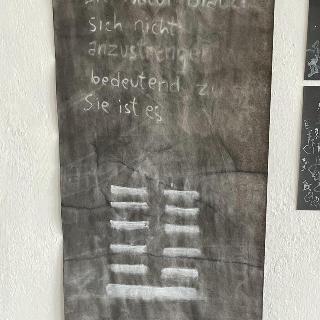 die Natur braucht
sich nicht
anzustrengen
bedeutend zu
Sie ist es